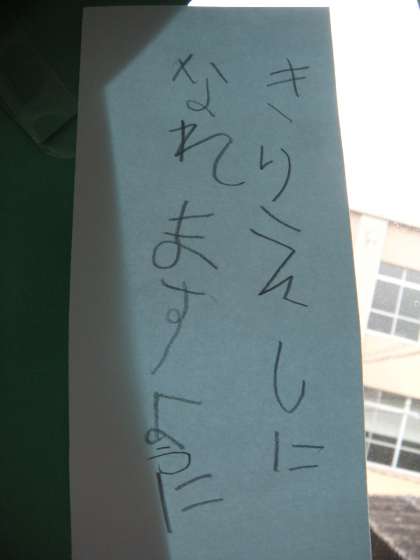 きりえしに
なれますように